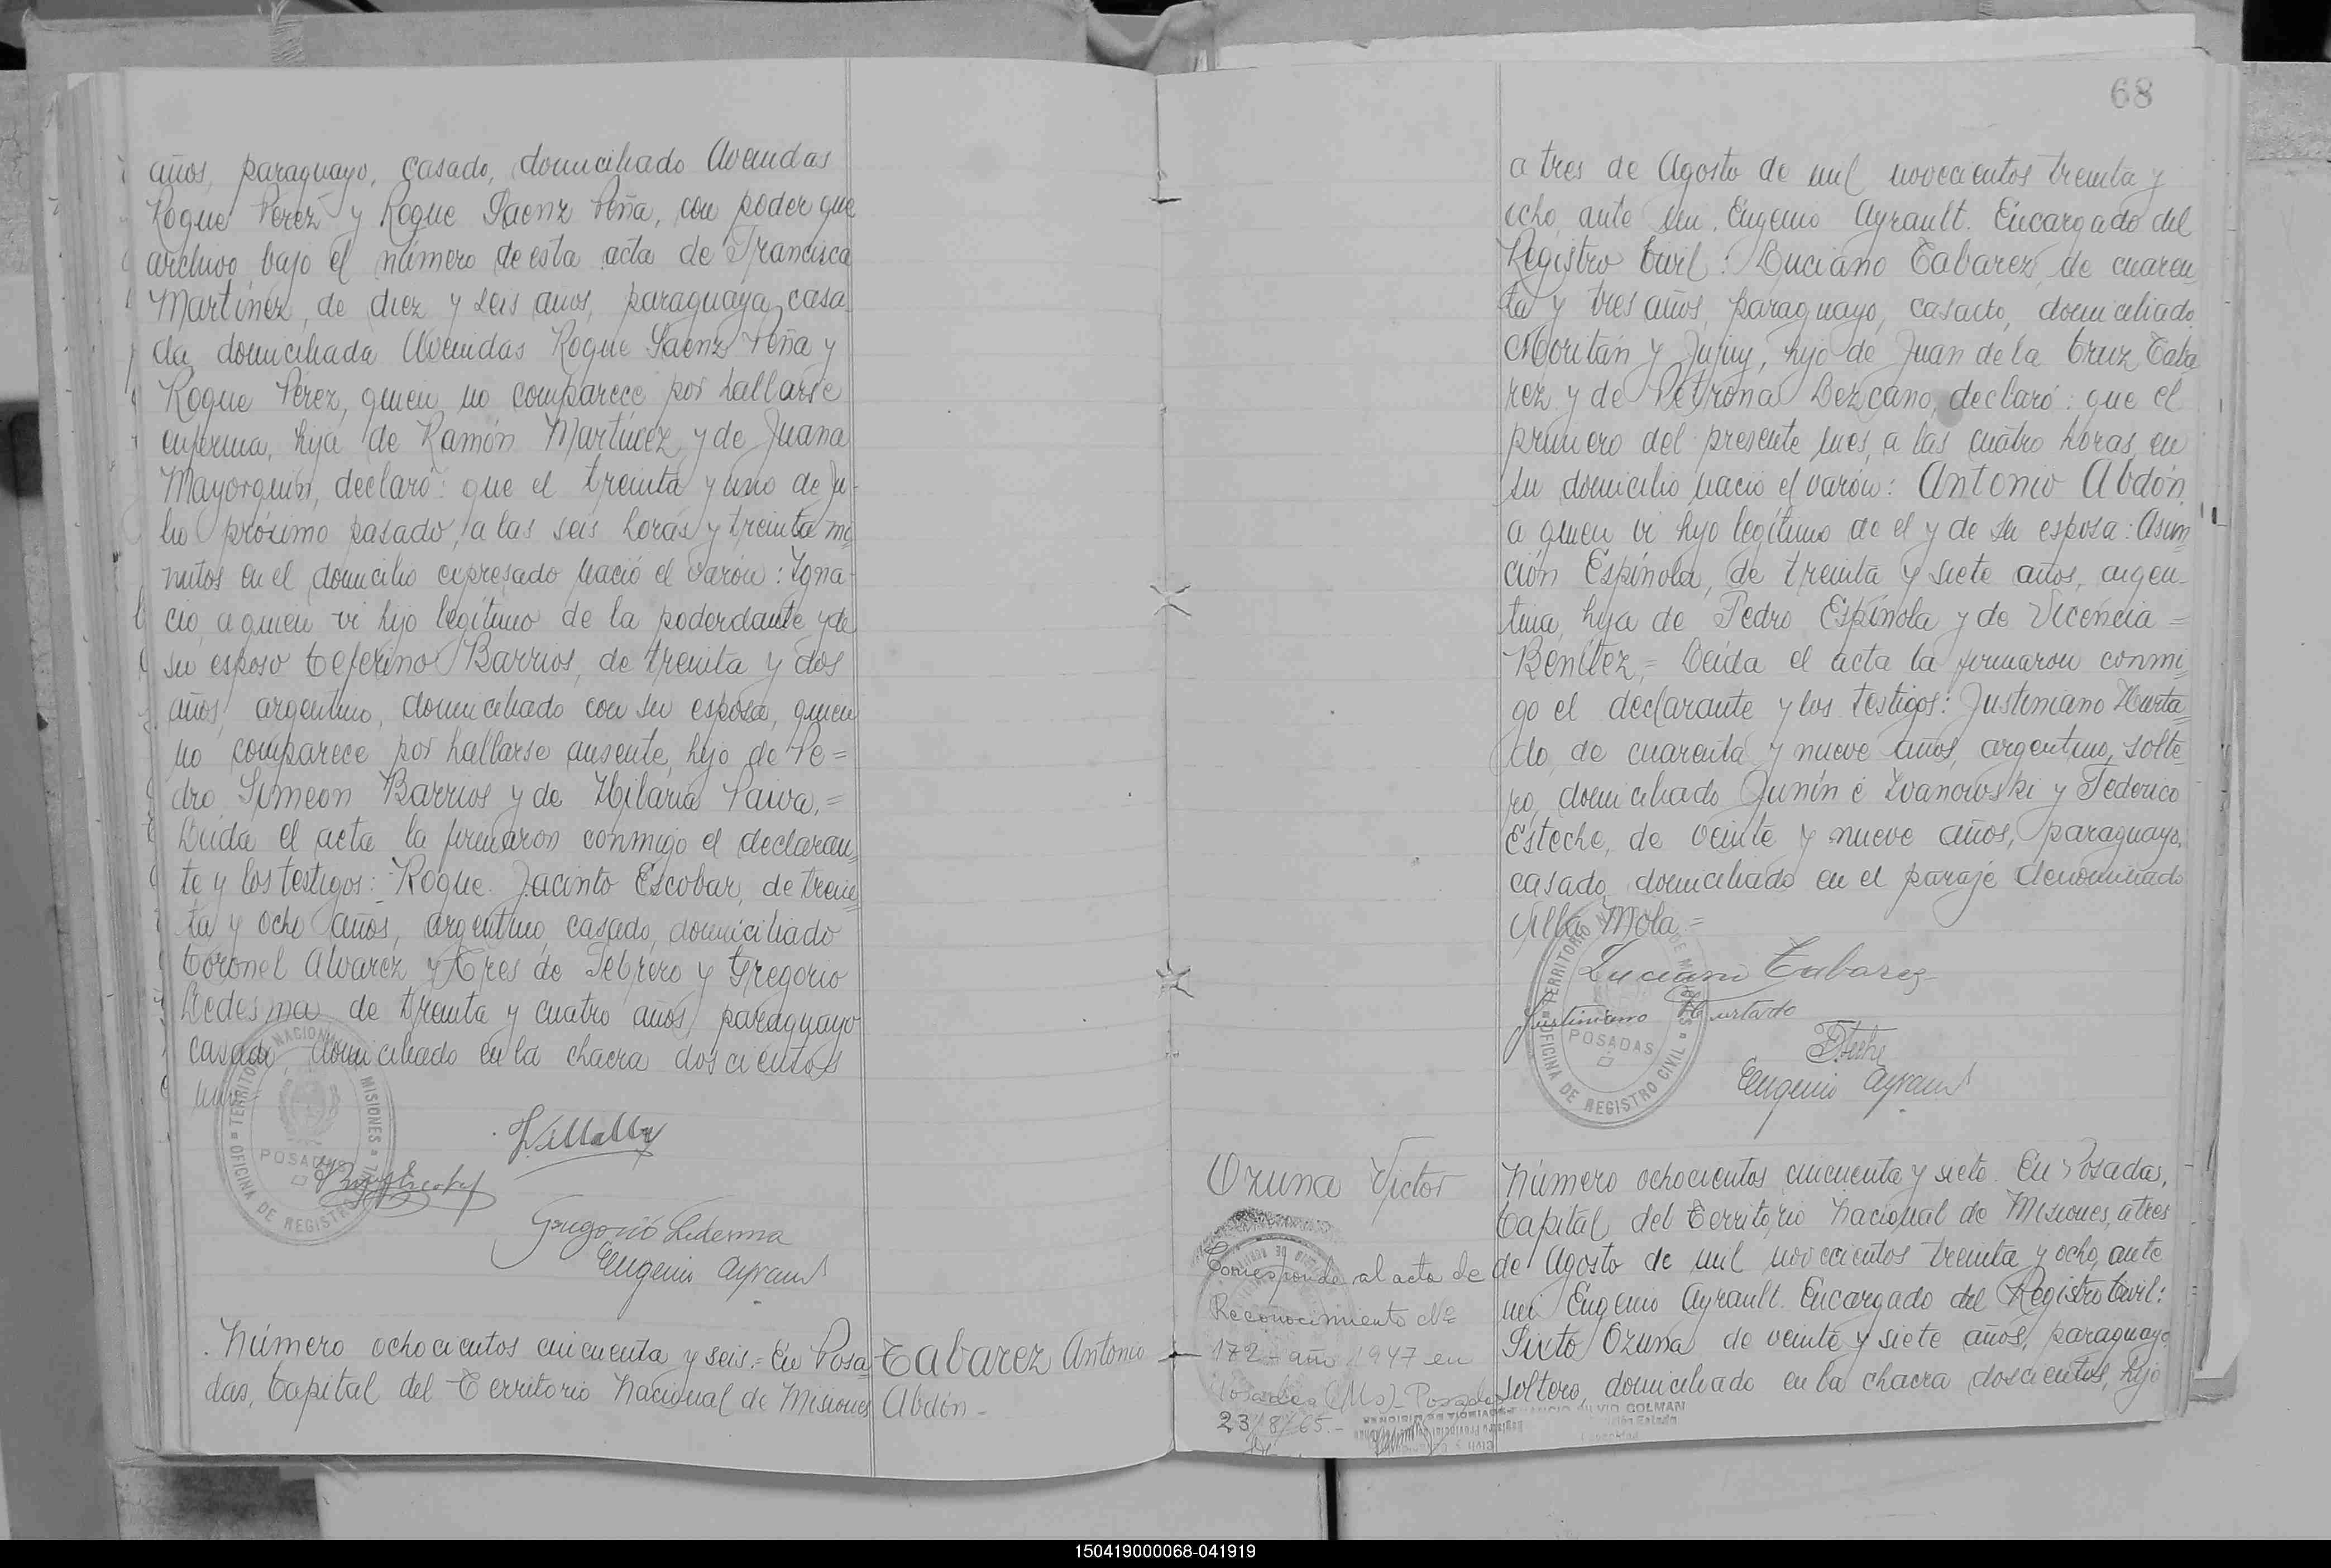 años, paraguayo, casado, domiciliado Avenidas
Roque Perez y Roque Saenz Peña, con poder que
archivo bajo el número de esta acta de Francisca
Martínez, de diez y seis años, paraguaya, casa-
da, domiciliada Avenidas Roque Saenz Peña y
Roque Pérez, quien no comparece por hallarse
enferma, hija de Ramón Martínez y de Juana
Mayorquin, declaró: que el treinta y uno de Ju-
lio próximo pasado, a las seis horas y treinta mi
nutos en el domicilio expresado nació el varón: Igna-
cio, a quien vi hijo legítimo de la poderdante y de
su esposo Ceferino Barrios, de treinta y dos
años, argentino, domiciliado con su esposa, quien
no comparece por hallarse ausente, hijo de Pe=
dro Simeon Barrios y de Hilaria Paiva.=
Leida el acta la firmaron conmigo el declaran=
te y los testigos: Roque Jacinto Escobar, de trein=
ta y ocho años, argentino, casado, domiciliado
Coronel Alvarez y Tres de Febrero y Gregorio
Ledesma de treinta y cuatro años, paraguayo
casado, domiciliado en la chacra doscientos
uno=
TERRITORIO NACIONAL DE MISIONES
OFICINA DE REGISTRO CIVIL
POSADAS
Gregorio Ledesma
Eugenio Ayrault
Número ochocientos cincuenta y seis.= En Posa
das, Capital del Territorio Nacional de Misiones
Tabarez Antonio
Abdón-
68
a tres de Agosto de mil novecientos treinta y
ocho, ante mi, Eugenio Ayrault. Encargado del
Registro Civil: Luciano Tabarez, de cuaren
ta y tres años, paraguayo, casado, domiciliado
Moritán y Jujuy, hijo de Juan de la Cruz Taba
rez y de Petrona Lezcano, declaró: que el
primero del presente mes, a las cuatro horas, en
su domicilio nació el varón: Antonio Abdón
a quien vi hijo legítimo de el y de su esposa: Asun=
ción Espínola, de treinta y siete años, argen-
tina, hija de Pedro Espínola y de Vicencia =
Benítez.= Leida el acta la firmaron conmi=
go el declarante y los testigos: Justiniano Hurta=
do, de cuarenta y nueve años, argentino, solte=
ro, domiciliado Junín é Ivanowski y Federico
Esteche, de veinte y nueve años, paraguayo,
casado, domiciliado en el paraje denominado
Villa Mola=
Luciano Tabarez
Justiniano Hurtado
TERRITORIO NACIONAL DE MISIONES
OFICINA DE REGISTRO CIVIL
POSADAS
Eugenio Ayrault
Ozuna Victor
Corresponde al acta de
Reconocimiento Nº
172 - año 1947 en
Posadas (Ms)- Posadas
23/8/65.-
Número ochocientos cincuenta y siete. En Posadas,
Capital del Territorio Nacional de Misiones, a tres
de Agosto de mil novecientos treinta y ocho, ante
mi Eugenio Ayrault. Encargado del Registro Civil:
Sixto Ozuna de veinte y siete años, paraguayo,
soltero, domiciliado en la chacra doscientos, hijo
COLMAN
150419000068-041919